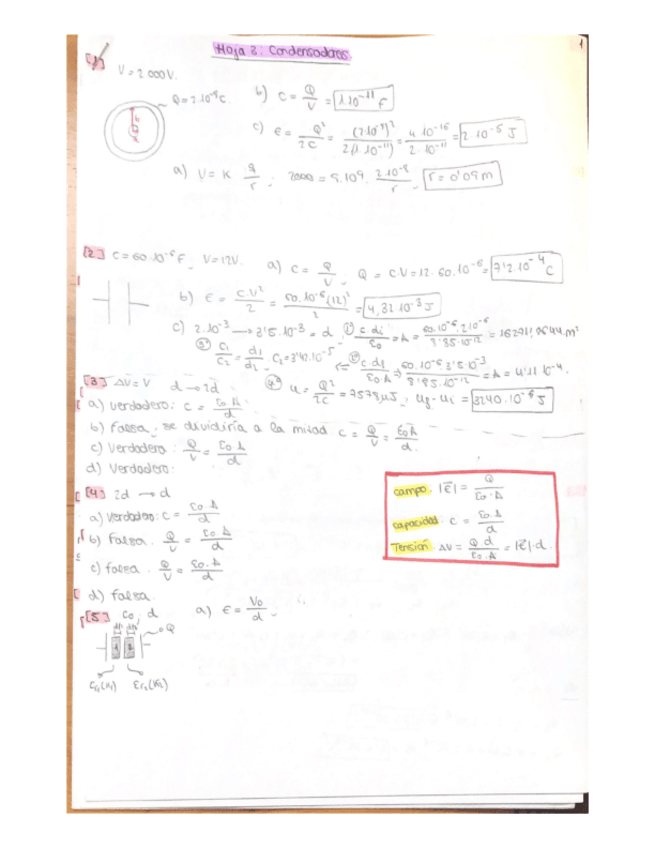 Hoja 3: Condensadores
1
[1]
V=2000V.
Q=2.10⁻⁸C.
b) C = Q/V = 1.10⁻¹¹ F
c) E = Q²/2C = (2.10⁻⁸)²/2(1.10⁻¹¹) = 4.10⁻¹⁶/2.10⁻¹¹ = 2.10⁻⁵ J
a) V = K q/r ; 2000 = 9.10⁹. 2.10⁻⁸/r ; r = 0'09m
[2] C=60.10⁻⁶F, V=12V.
a) C = Q/V ; Q = C.V = 12.60.10⁻⁶ = 7'2.10⁻⁴ C
b) E = C.V²/2 = 60.10⁻⁶(12)²/2 = 4,32.10⁻³ J
c) 2.10⁻³ → 3'5.10⁻³ = d
C₁/C₂ = d₁/d₂ . C₂=3'42.10⁻⁵
u = Q²/2C = 7578μJ
[3] ΔV=V d → 2d
a) Verdadero: C = ε₀.A/d
b) Falsa, se dividiría a la mitad C = Q/V = ε₀.A/d.
c) Verdadero: Q/V = ε₀.A/d
d) Verdadero.
[4] 2d → d
a) Verdadero: C = ε₀.A/d
b) Falsa. Q/V = ε₀.A/d
c) falsa. Q/V = ε₀.A/d
d) falsa.
campo. |E| = Q/ε₀.A
capacidad. C = ε₀.A/d
Tensión. ΔV = Q.d/ε₀.A = |E|.d.
[5] C₀, d
a) E = V₀/d
Q
1 2